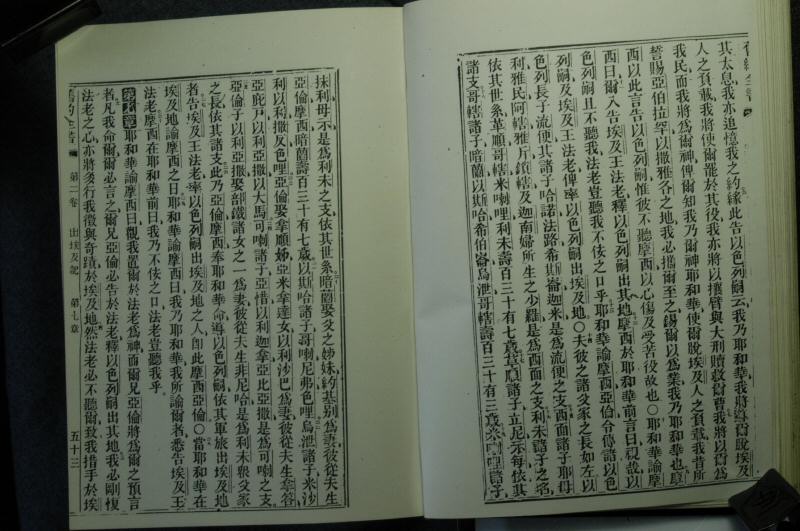 舊約全書
其太息我亦追憶我之約緣此告以色列嗣云我乃耶和華我將導爾脫埃及
人之負載我將使爾罷於其役我亦將以攘臂與大刑贖救爾曹我將以爾為
我民而我將為爾神俾爾知我乃爾神耶和華使爾脫埃及人之負載我昔所
誓賜亞伯拉罕以撒雅各之地我必攜爾至之錫爾以為業我乃耶和華也摩
西以此言告以色列嗣惟彼不聽摩西以心傷及受苦役故也○耶和華諭摩
西曰爾入告埃及王法老釋以色列嗣出其地摩西於耶和華前言曰視哉以
色列嗣且不聽我法老豈聽我不依之口乎耶和華諭摩西亞倫令傳諸以色
列嗣及埃及王法老俾率以色列嗣出埃及地○夫彼之諸父家之長如左以
色列長子流便其諸子哈諾法路希斯崙迦米是為流便之支西面諸子耶母
利雅民阿轄雅斤鎖轄及迦南婦所生之少羅是為西面之支利未諸子之名
依其世系革順哥轄米喇哩利未壽百三十有七歲革順諸子立尼示每依其
諸支哥轄諸子暗蘭以斯哈希伯崙烏泄哥轄壽百三十有三歲米喇哩諸子
抹利母示是為利未之支依其世系暗蘭娶父之姊妹約基別為妻彼從夫生
亞倫摩西暗蘭壽百三十有七歲以斯哈諸子哥喇尼弗色哩烏泄諸子米沙
利以利撒反色哩亞倫娶拿順姊亞米拿達女以利沙巴為妻彼從夫生拿答
亞庇戶以利亞撒以大馬可喇諸子亞惜以利迦拿亞比亞撒是為可喇之支
亞倫子以利亞撒娶部鐵諸女之一為妻彼從夫生非尼哈是為利未衆父家
之長依其諸支此乃亞倫摩西奉耶和華命導以色列嗣依其軍旅出埃及地
者告埃及王法老率以色列嗣出埃及地之人卽此摩西亞倫○當耶和華在
埃及地諭摩西之日耶和華諭摩西曰我乃耶和華我所諭爾者悉告埃及王
法老摩西在耶和華前曰我乃不依之口法老豈聽我乎
第七章耶和華諭摩西曰觀我置爾於法老為神而爾兄亞倫將為爾之預言
者凡我命爾爾必言之爾兄亞倫必告於法老釋以色列嗣出其地我必剛愎
法老之心亦將多行我徵與奇蹟於埃及地然法老必不聽爾致我措手於埃
舊約全書 第二卷 出埃及記 第七章 五十三